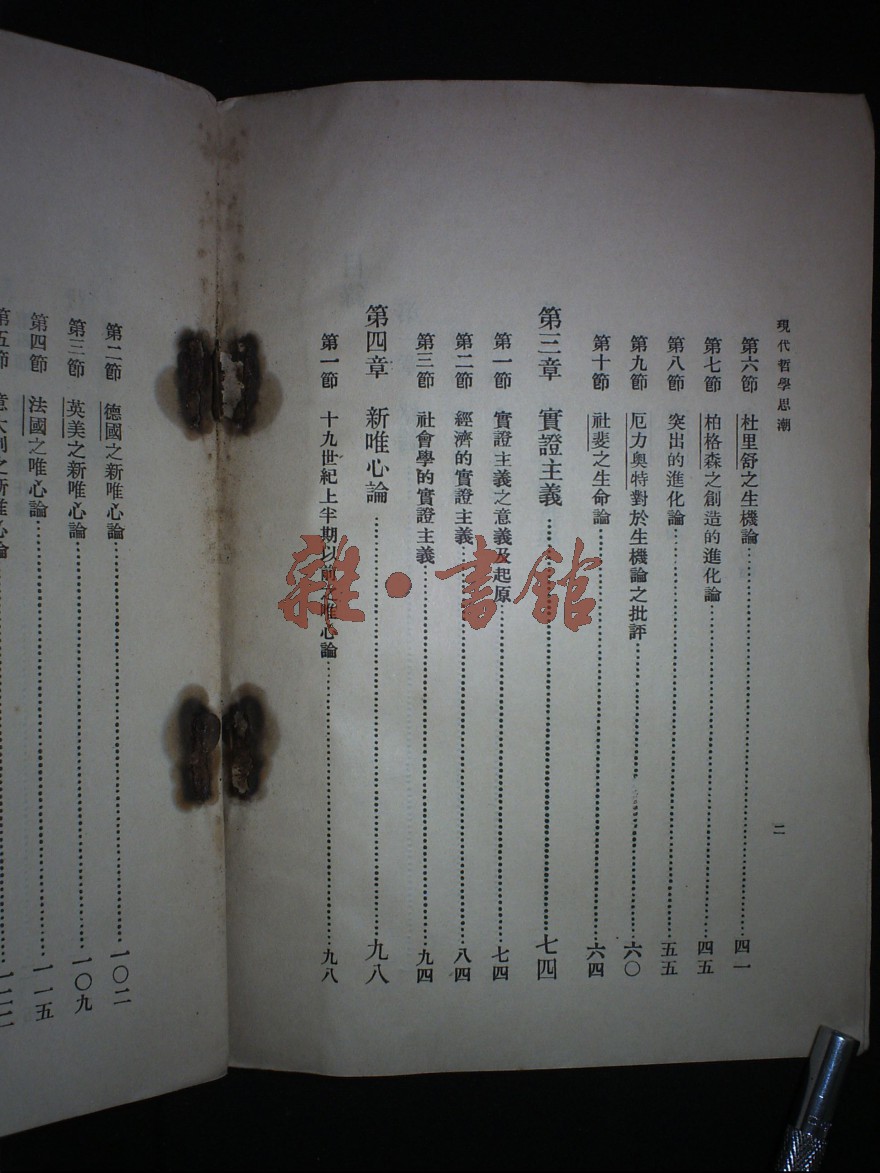 現代哲學思潮
二
第六節 杜里舒之生機論……四一
第七節 柏格森之創造的進化論……四五
第八節 突出的進化論……五五
第九節 厄力奧特對於生機論之批評……六〇
第十節 社斐之生命論……六四
第三章 實證主義……七四
第一節 實證主義之意義及起原……七四
第二節 經濟的實證主義……八四
第三節 社會學的實證主義……九四
第四章 新唯心論……九八
第一節 十九世紀上半期以前之唯心論……九八
第二節 德國之新唯心論……一〇二
第三節 英美之新唯心論……一〇九
第四節 法國之唯心論……一一五
第五節 意大利之新唯心論……一二二
雜·書館